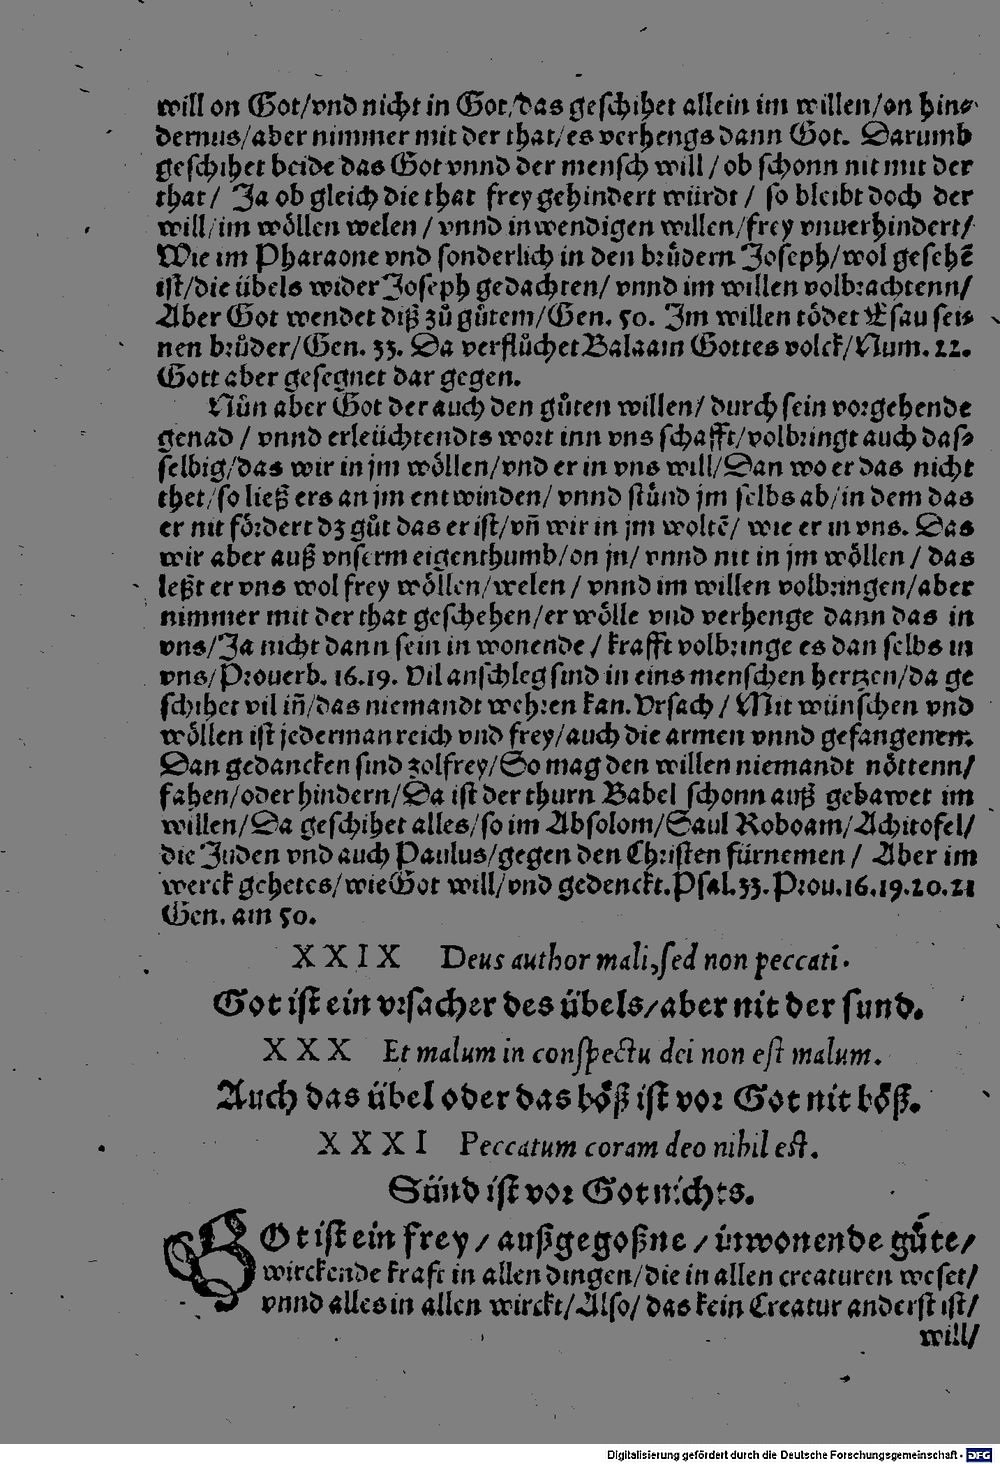 will on Got/vnd nicht in Got/das geschihet allein im willen/on hin⸗
dernus/aber nimmer mit der that/es verhengs dann Got. Darumb
geschihet beide das Got vnnd der mensch will/ob schonn nit mit der
that/ Ja ob gleich die that frey gehindert würdt/ so bleibt doch der
will/im wöllen welen/vnnd inwendigen willen/frey vnuerhindert/
Wie im Pharaone vnd sonderlich in den brůdern Joseph/wol geschẽ
ist/die übels wider Joseph gedachten/ vnnd im willen volbrachtenn/
Aber Got wendet diß zů gůtem/Gen. 50. Im willen tödet Esau sei⸗
nen brůder/Gen. 33. Da verflůchet Balaam Gottes volck/Num. 22.
Gott aber gesegnet dar gegen.
Nůn aber Got der auch den gůten willen/ durch sein vorgehende
genad / vnnd erleüchtendts wort inn vns schafft/volbringt auch das⸗
selbig/das wir in jm wöllen/vnd er in vns will/Dan wo er das nicht
thet/so ließ ers an jm entwinden/ vnnd stůnd jm selbs ab/in dem das
er nit fördert dz gůt das er ist/vñ wir in jm woltẽ/ wie er in vns. Das
wir aber auß vnserm eigenthumb/on jn/ vnnd nit in jm wöllen / das
leßt er vns wol frey wöllen/welen / vnnd im willen volbringen/aber
nimmer mit der that geschehen/er wölle vnd verhenge dann das in
vns/Ja nicht dann sein in wonende / krafft volbringe es dan selbs in
vns/Prouerb. 16.19. Vil anschleg sind in eins menschen hertzen/da ge
schihet vil iñ/das niemandt wehren kan. Vrsach / Mit wünschen vnd
wöllen ist jederman reich vnd frey/auch die armen vnnd gefangenen.
Dan gedancken sind zolfrey/So mag den willen niemandt nöttenn/
fahen/oder hindern/Da ist der thurn Babel schonn auß gebawet im
willen/Da geschihet alles/so im Absolom/Saul Roboam/Achitofel/
die Juden vnd auch Paulus/gegen den Christen fürnemen / Aber im
werck gehet es/wie Got will/vnd gedenckt. Psal. 33. Prou. 16.19.20.21
Gen. am 50.
XXIX Deus author mali, sed non peccati.
Got ist ein vrsacher des übels/aber nit der sund.
XXX Et malum in conspectu dei non est malum.
Auch das übel oder das böß ist vor Got nit böß.
XXXI Peccatum coram deo nihil est.
Sünd ist vor Got nichts.
GOt ist ein frey / außgegoßne / inwonende gůte/
wirckende kraft in allen dingen/die in allen creaturen weset/
vnnd alles in allen wirckt/Also/ das kein Creatur anderst ist/
will/
Digitalisierung gefördert durch die Deutsche Forschungsgemeinschaft - DFG